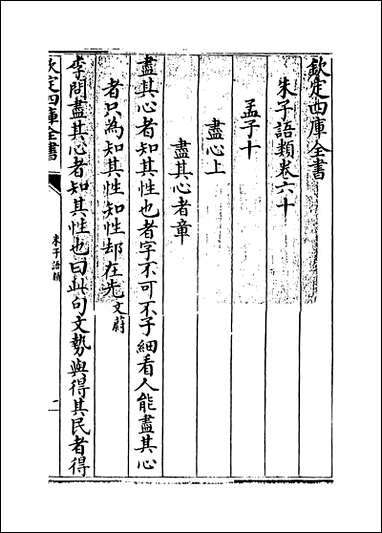 欽定四庫全書
朱子語類卷六十
孟子十
盡心上
盡其心者章
盡其心者知其性也者字不可不子細看人能盡其心
者只為知其性知性却在先文蔚
李問盡其心者知其性也曰此句文勢與得其民者得
欽定四庫全書
朱子語類